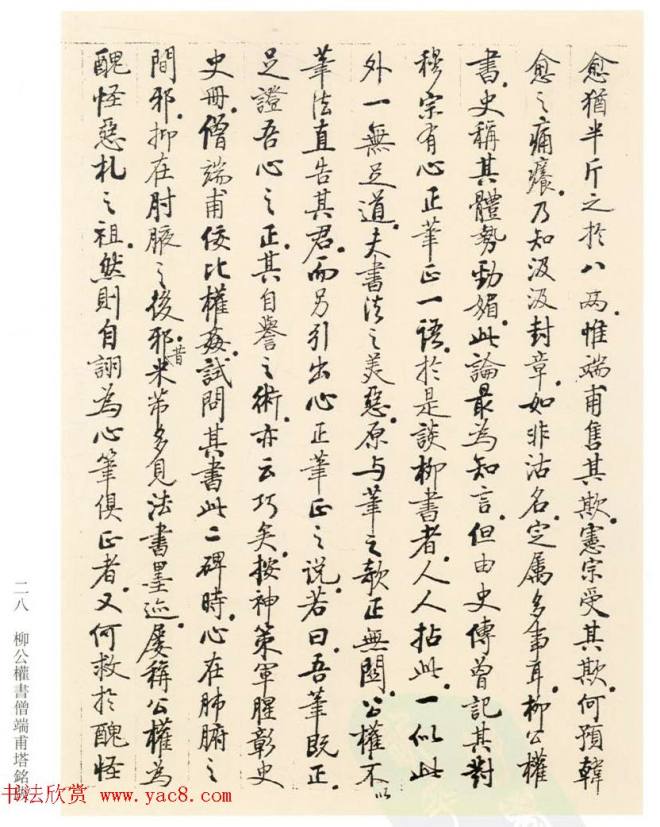 愈猶半斤之於八兩。惟端甫售其欺。憲宗受其欺。何預韓
愈之痛癢。乃知汲汲封章。如非沽名。定属多事耳。柳公權
書。史稱其體勢勁媚。此論最為知言。但由史傳曾記其對
穆宗有心正筆正一語。於是談柳書者。人人拈此。一似此
外一無足道。夫書法之美惡。原与筆之欹正無關。公權不以
筆法直告其君。而另引出心正筆正之说。若曰。吾筆既正。
足證吾心之正。其自譽之術。亦云巧矣。按神策軍腥彰史
史冊。僧端甫佞比權姦。試問其書此二碑時。心在肺腑之
間邪。抑在肘腋之後邪。昔米芾多見法書墨迹。屡稱公權為
醜怪惡札之祖。然則自詡為心筆俱正者。又何救於醜怪
二八 柳公權書僧端甫塔銘跋
书法欣赏 www.yac8.com